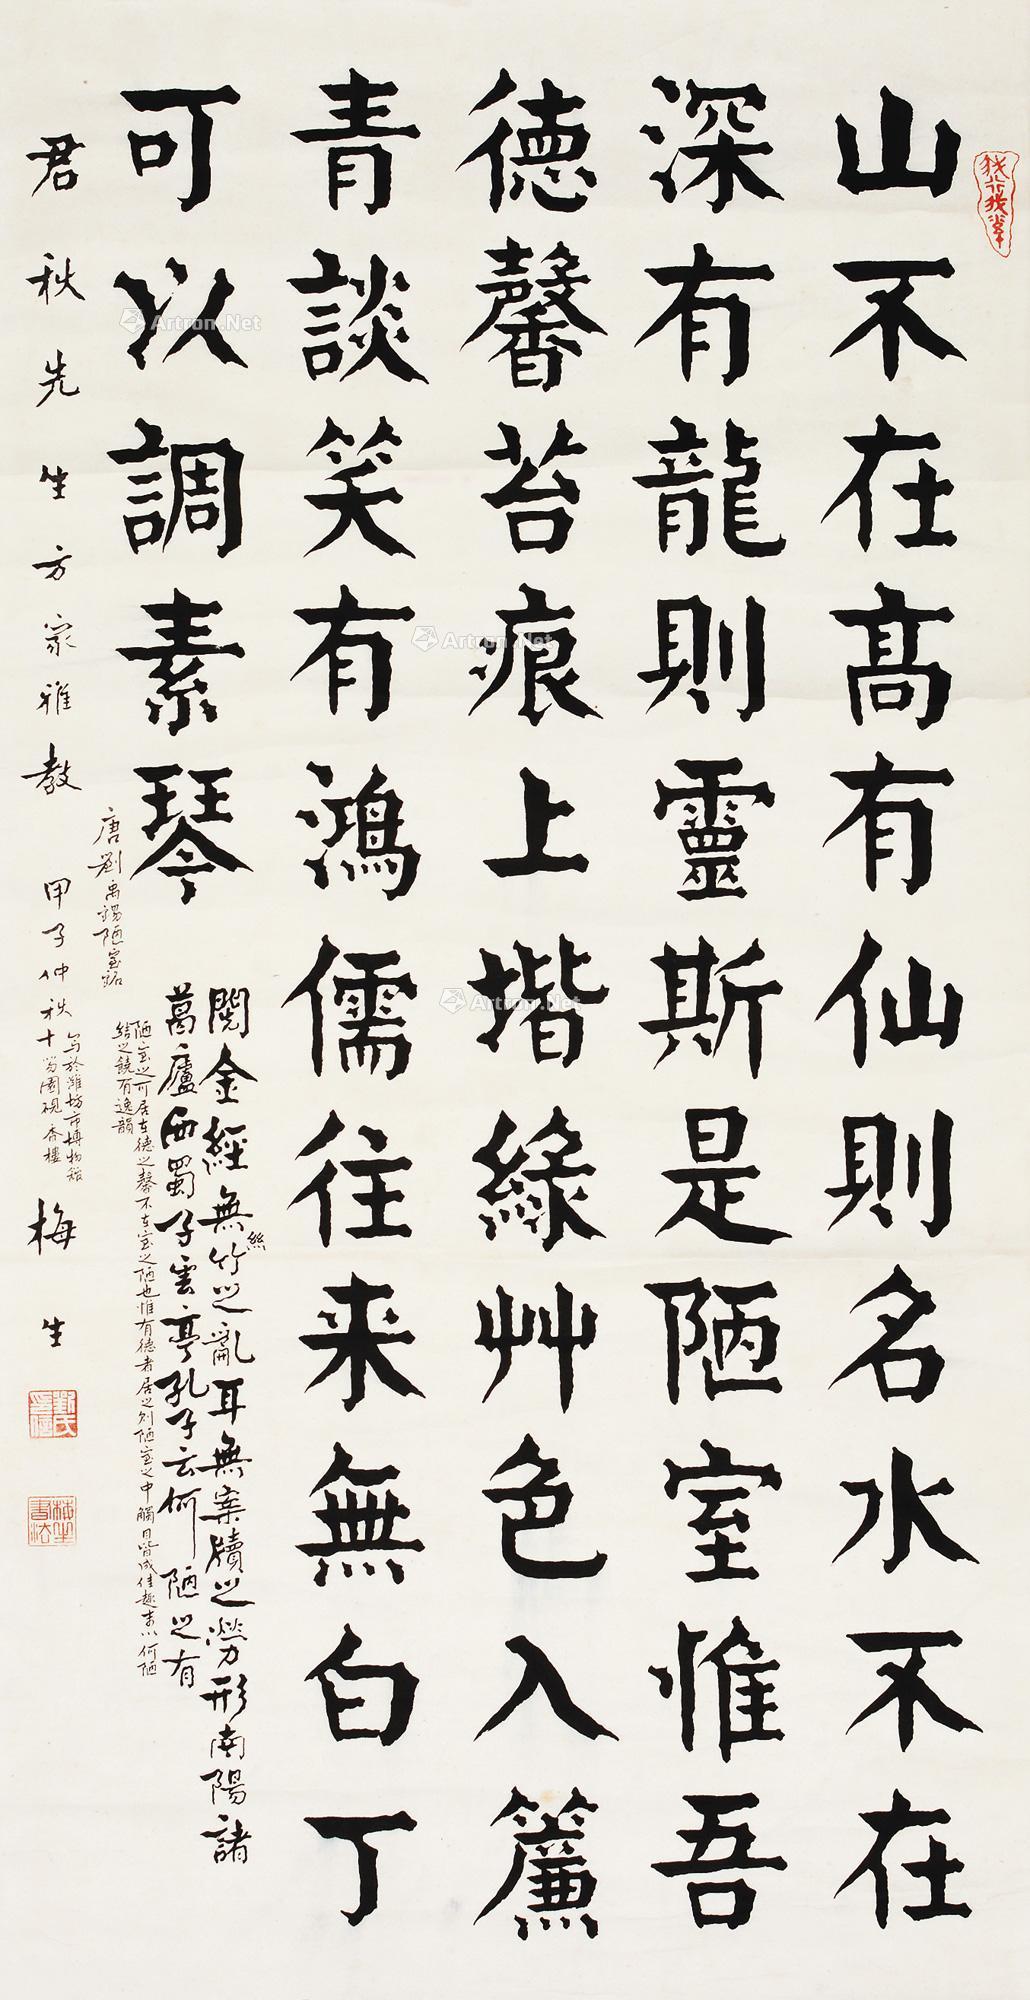 山不在高有仙則名水不在
深有龍則靈斯是陋室惟吾
德馨苔痕上揩綠艸色入簾
青談笑有鴻儒往来無白丁
可以調素琴
閱金經無竹之亂耳無案牘之勞形南陽諸
絲
葛廬西蜀子雲亭孔子云何陋之有
陋室之可居在德之馨不在室之陋也惟有德者居之則陋室之中觸目皆成佳趣末以何陋
結之饒有逸韻
唐劉禹錫陋室銘
君秋先生方家雅教
甲子仲秋十笏園硯香樓
写於濰坊市博物舘
梅生
Artron.Net
Artron.Net
Artron.Net